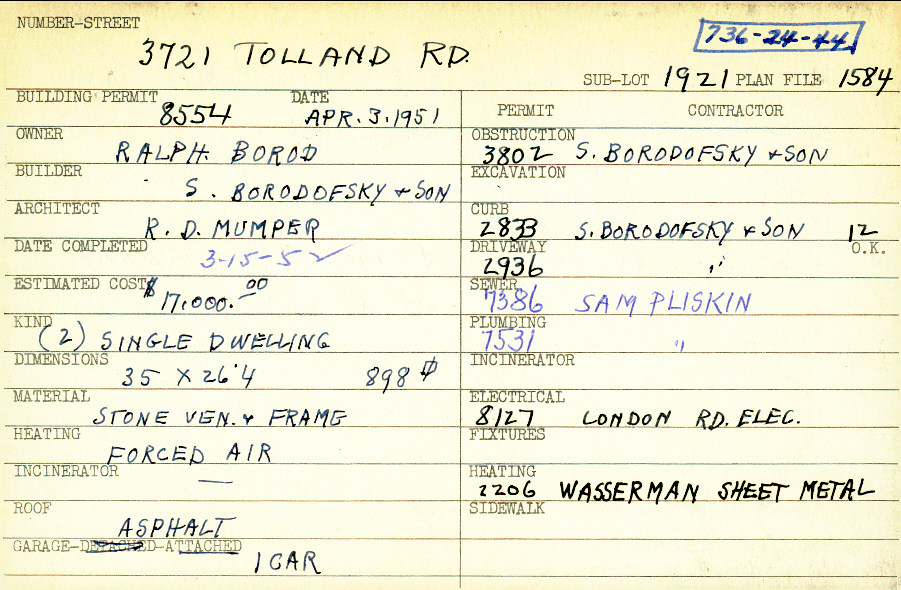 NUMBER-STREET
3721 TOLLAND RD.
736-24-44
SUB-LOT 1921 PLAN FILE 1584
BUILDING PERMIT DATE
8554 APR. 3. 1951
OWNER
RALPH BOROD
BUILDER
S. BORODOFSKY + SON
ARCHITECT
R. D. MUMPER
DATE COMPLETED
3-15-52
ESTIMATED COST
$17,000.00
KIND
(2) SINGLE DWELLING
DIMENSIONS
35 X 26'4 898
MATERIAL
STONE VEN. + FRAME
HEATING
FORCED AIR
INCINERATOR
—
ROOF
ASPHALT
GARAGE-DETACHED-ATTACHED
1 CAR
PERMIT CONTRACTOR
OBSTRUCTION
3802 S. BORODOFSKY + SON
EXCAVATION
CURB
2833 S. BORODOFSKY + SON 12
DRIVEWAY O.K.
2936 "
SEWER
7386 SAM PLISKIN
PLUMBING
7531 "
INCINERATOR
ELECTRICAL
8127 LONDON RD. ELEC.
FIXTURES
HEATING
2206 WASSERMAN SHEET METAL
SIDEWALK